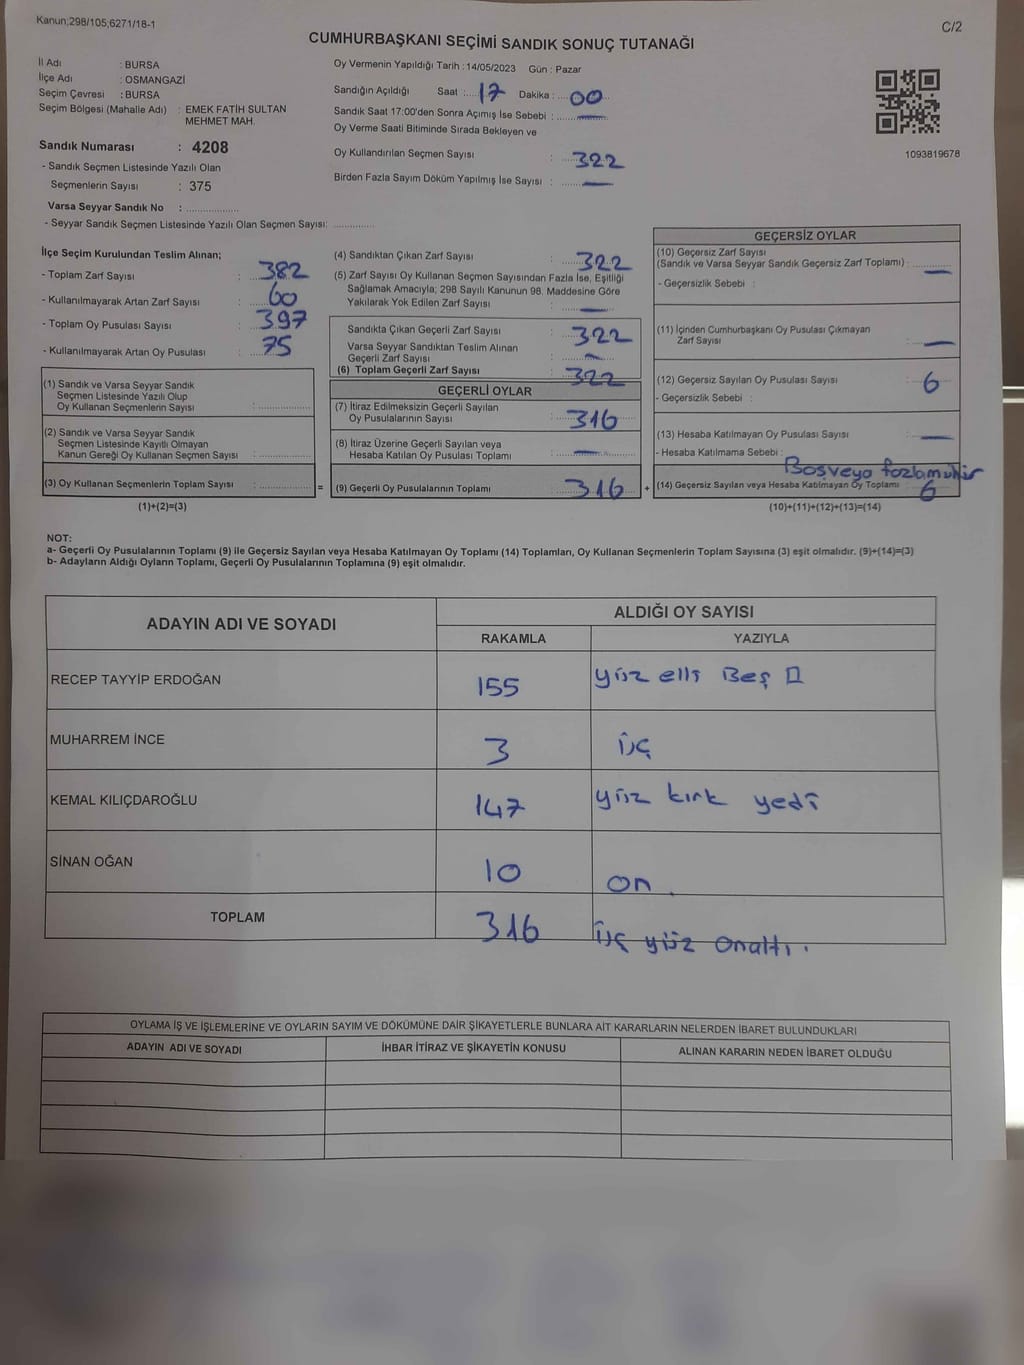 Kanun;298/105,6271/18-1
C/2
CUMHURBAŞKANI SEÇİMİ SANDIK SONUÇ TUTANAĞI
İl Adı : BURSA
İlçe Adı : OSMANGAZİ
Seçim Çevresi : BURSA
Seçim Bölgesi (Mahalle Adı) : EMEK FATİH SULTAN
MEHMET MAH.
Sandık Numarası : 4208
- Sandık Seçmen Listesinde Yazılı Olan
Seçmenlerin Sayısı : 375
Varsa Seyyar Sandık No : ..................
- Seyyar Sandık Seçmen Listesinde Yazılı Olan Seçmen Sayısı: .............
Oy Vermenin Yapıldığı Tarih : 14/05/2023 Gün : Pazar
Sandığın Açıldığı Saat :.... 17 Dakika :... 00
Sandık Saat 17:00'den Sonra Açımış İse Sebebi : —
Oy Verme Saati Bitiminde Sırada Bekleyen ve
Oy Kullandırılan Seçmen Sayısı : 322
Birden Fazla Sayım Döküm Yapılmış İse Sayısı : —
1093819678
İlçe Seçim Kurulundan Teslim Alınan;
- Toplam Zarf Sayısı : 382
- Kullanılmayarak Artan Zarf Sayısı : 60
- Toplam Oy Pusulası Sayısı : 397
- Kullanılmayarak Artan Oy Pusulası : 75
(1) Sandık ve Varsa Seyyar Sandık
Seçmen Listesinde Yazılı Olup
Oy Kullanan Seçmenlerin Sayısı :..................
(2) Sandık ve Varsa Seyyar Sandık
Seçmen Listesinde Kayıtlı Olmayan
Kanun Gereği Oy Kullanan Seçmen Sayısı :..................
(3) Oy Kullanan Seçmenlerin Toplam Sayısı :.................. =
(1)+(2)=(3)
(4) Sandıktan Çıkan Zarf Sayısı : 322
(5) Zarf Sayısı Oy Kullanan Seçmen Sayısından Fazla İse, Eşitliği
Sağlamak Amacıyla; 298 Sayılı Kanunun 98. Maddesine Göre
Yakılarak Yok Edilen Zarf Sayısı : —
Sandıkta Çıkan Geçerli Zarf Sayısı : 322
Varsa Seyyar Sandıktan Teslim Alınan
Geçerli Zarf Sayısı : —
(6) Toplam Geçerli Zarf Sayısı : 322
GEÇERLİ OYLAR
(7) İtiraz Edilmeksizin Geçerli Sayılan
Oy Pusulalarının Sayısı : 316
(8) İtiraz Üzerine Geçerli Sayılan veya
Hesaba Katılan Oy Pusulası Toplamı : —
(9) Geçerli Oy Pusulalarının Toplamı : 316 +
GEÇERSİZ OYLAR
(10) Geçersiz Zarf Sayısı
(Sandık ve Varsa Seyyar Sandık Geçersiz Zarf Toplamı) : —
- Geçersizlik Sebebi :
(11) İçinden Cumhurbaşkanı Oy Pusulası Çıkmayan
Zarf Sayısı : —
(12) Geçersiz Sayılan Oy Pusulası Sayısı : 6
- Geçersizlik Sebebi :
(13) Hesaba Katılmayan Oy Pusulası Sayısı : —
- Hesaba Katılmama Sebebi :
Boş veya fazla mühür
(14) Geçersiz Sayılan veya Hesaba Katılmayan Oy Toplamı : 6
(10)+(11)+(12)+(13)=(14)
NOT:
a- Geçerli Oy Pusulalarının Toplamı (9) ile Geçersiz Sayılan veya Hesaba Katılmayan Oy Toplamı (14) Toplamları, Oy Kullanan Seçmenlerin Toplam Sayısına (3) eşit olmalıdır. (9)+(14)=(3)
b- Adayların Aldığı Oyların Toplamı, Geçerli Oy Pusulalarının Toplamına (9) eşit olmalıdır.
ADAYIN ADI VE SOYADI
ALDIĞI OY SAYISI
RAKAMLA YAZIYLA
RECEP TAYYİP ERDOĞAN 155 yüz elli Beş
MUHARREM İNCE 3 üç
KEMAL KILIÇDAROĞLU 147 yüz kırk yedi
SİNAN OĞAN 10 on
TOPLAM 316 üç yüz onaltı.
OYLAMA İŞ VE İŞLEMLERİNE VE OYLARIN SAYIM VE DÖKÜMÜNE DAİR ŞİKAYETLERLE BUNLARA AİT KARARLARIN NELERDEN İBARET BULUNDUKLARI
ADAYIN ADI VE SOYADI İHBAR İTİRAZ VE ŞİKAYETİN KONUSU ALINAN KARARIN NEDEN İBARET OLDUĞU